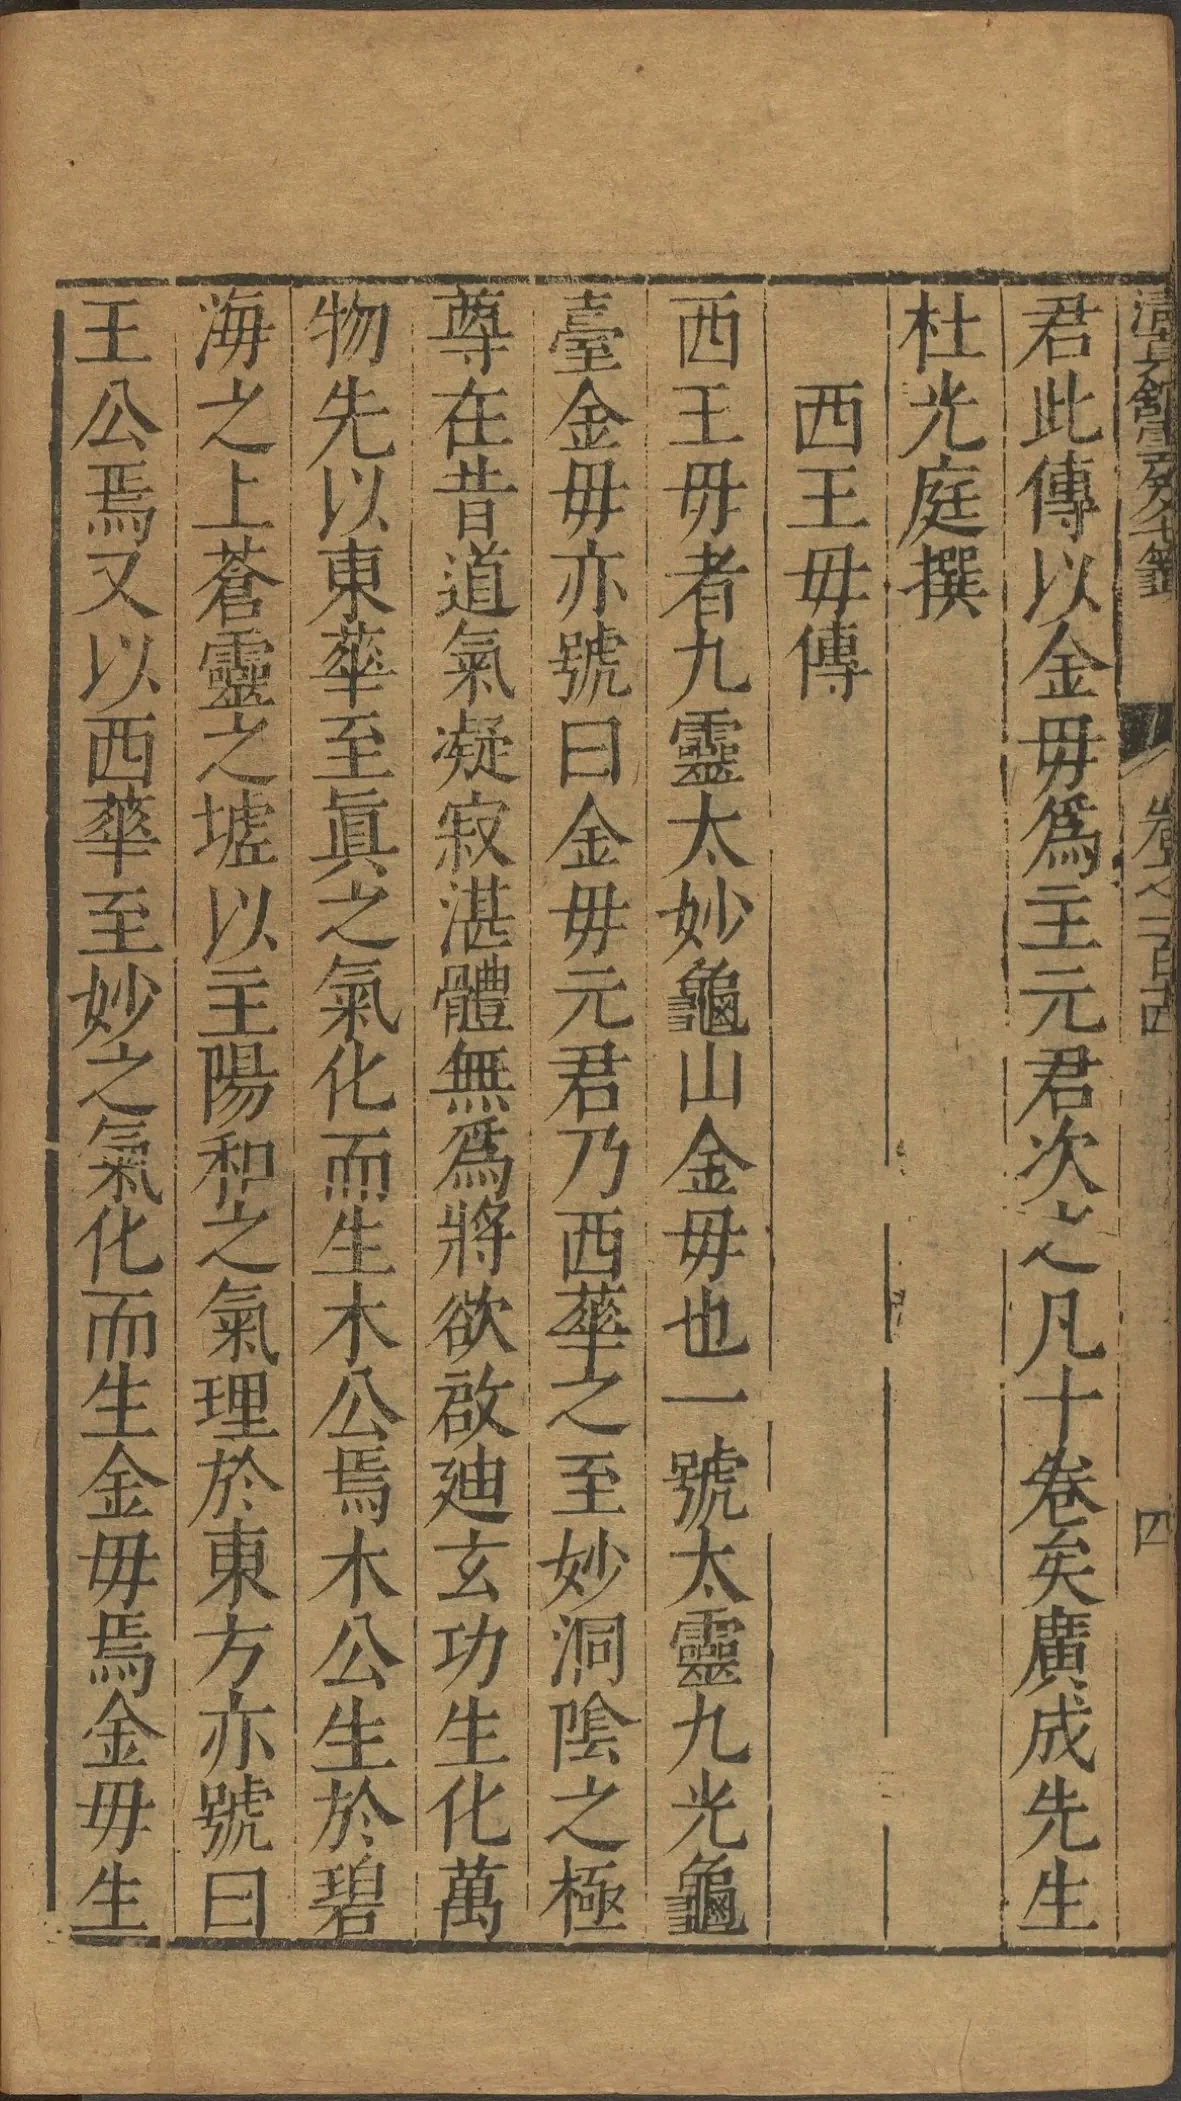 清真館雲笈七籤 卷之一百十四 四
君此傳以金毋爲主元君次之凡十卷矣廣成先生
杜光庭撰
西王毋傳
西王毋者九靈太妙龜山金毋也一號太靈九光龜
臺金毋亦號曰金毋元君乃西華之至妙洞隂之極
尊在昔道氣凝寂湛體無爲將欲啟廸玄功生化萬
物先以東華至眞之氣化而生木公焉木公生於碧
海之上蒼靈之墟以主陽和之氣理於東方亦號曰
王公焉又以西華至妙之氣化而生金毋焉金毋生